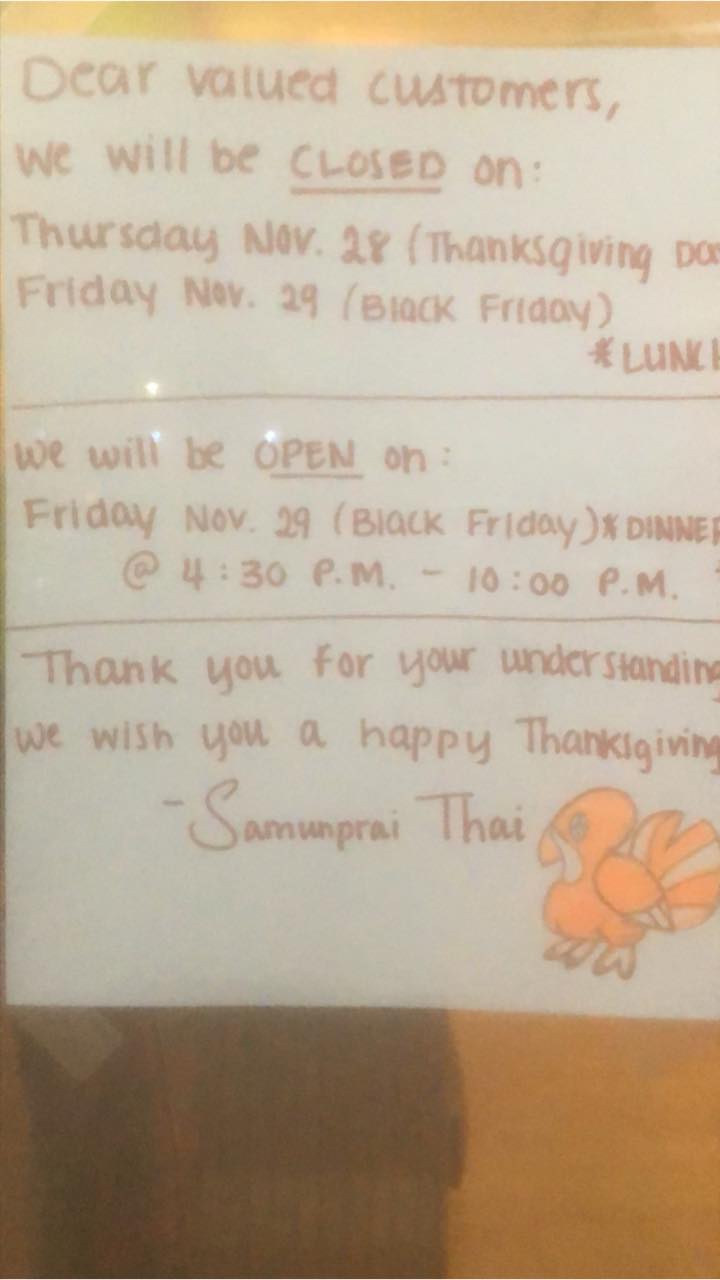 Dear valued customers,
we will be CLOSED on:
Thursday Nov. 28 (Thanksgiving Da
Friday Nov. 29 (Black Friday)
*LUNCH
we will be OPEN on:
Friday Nov. 29 (Black Friday)*DINNER
@ 4:30 P.M. - 10:00 P.M.
Thank you for your understanding
we wish you a happy Thanksgiving
-Samunprai Thai